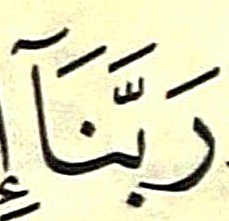 رَبَّنَآ إِ